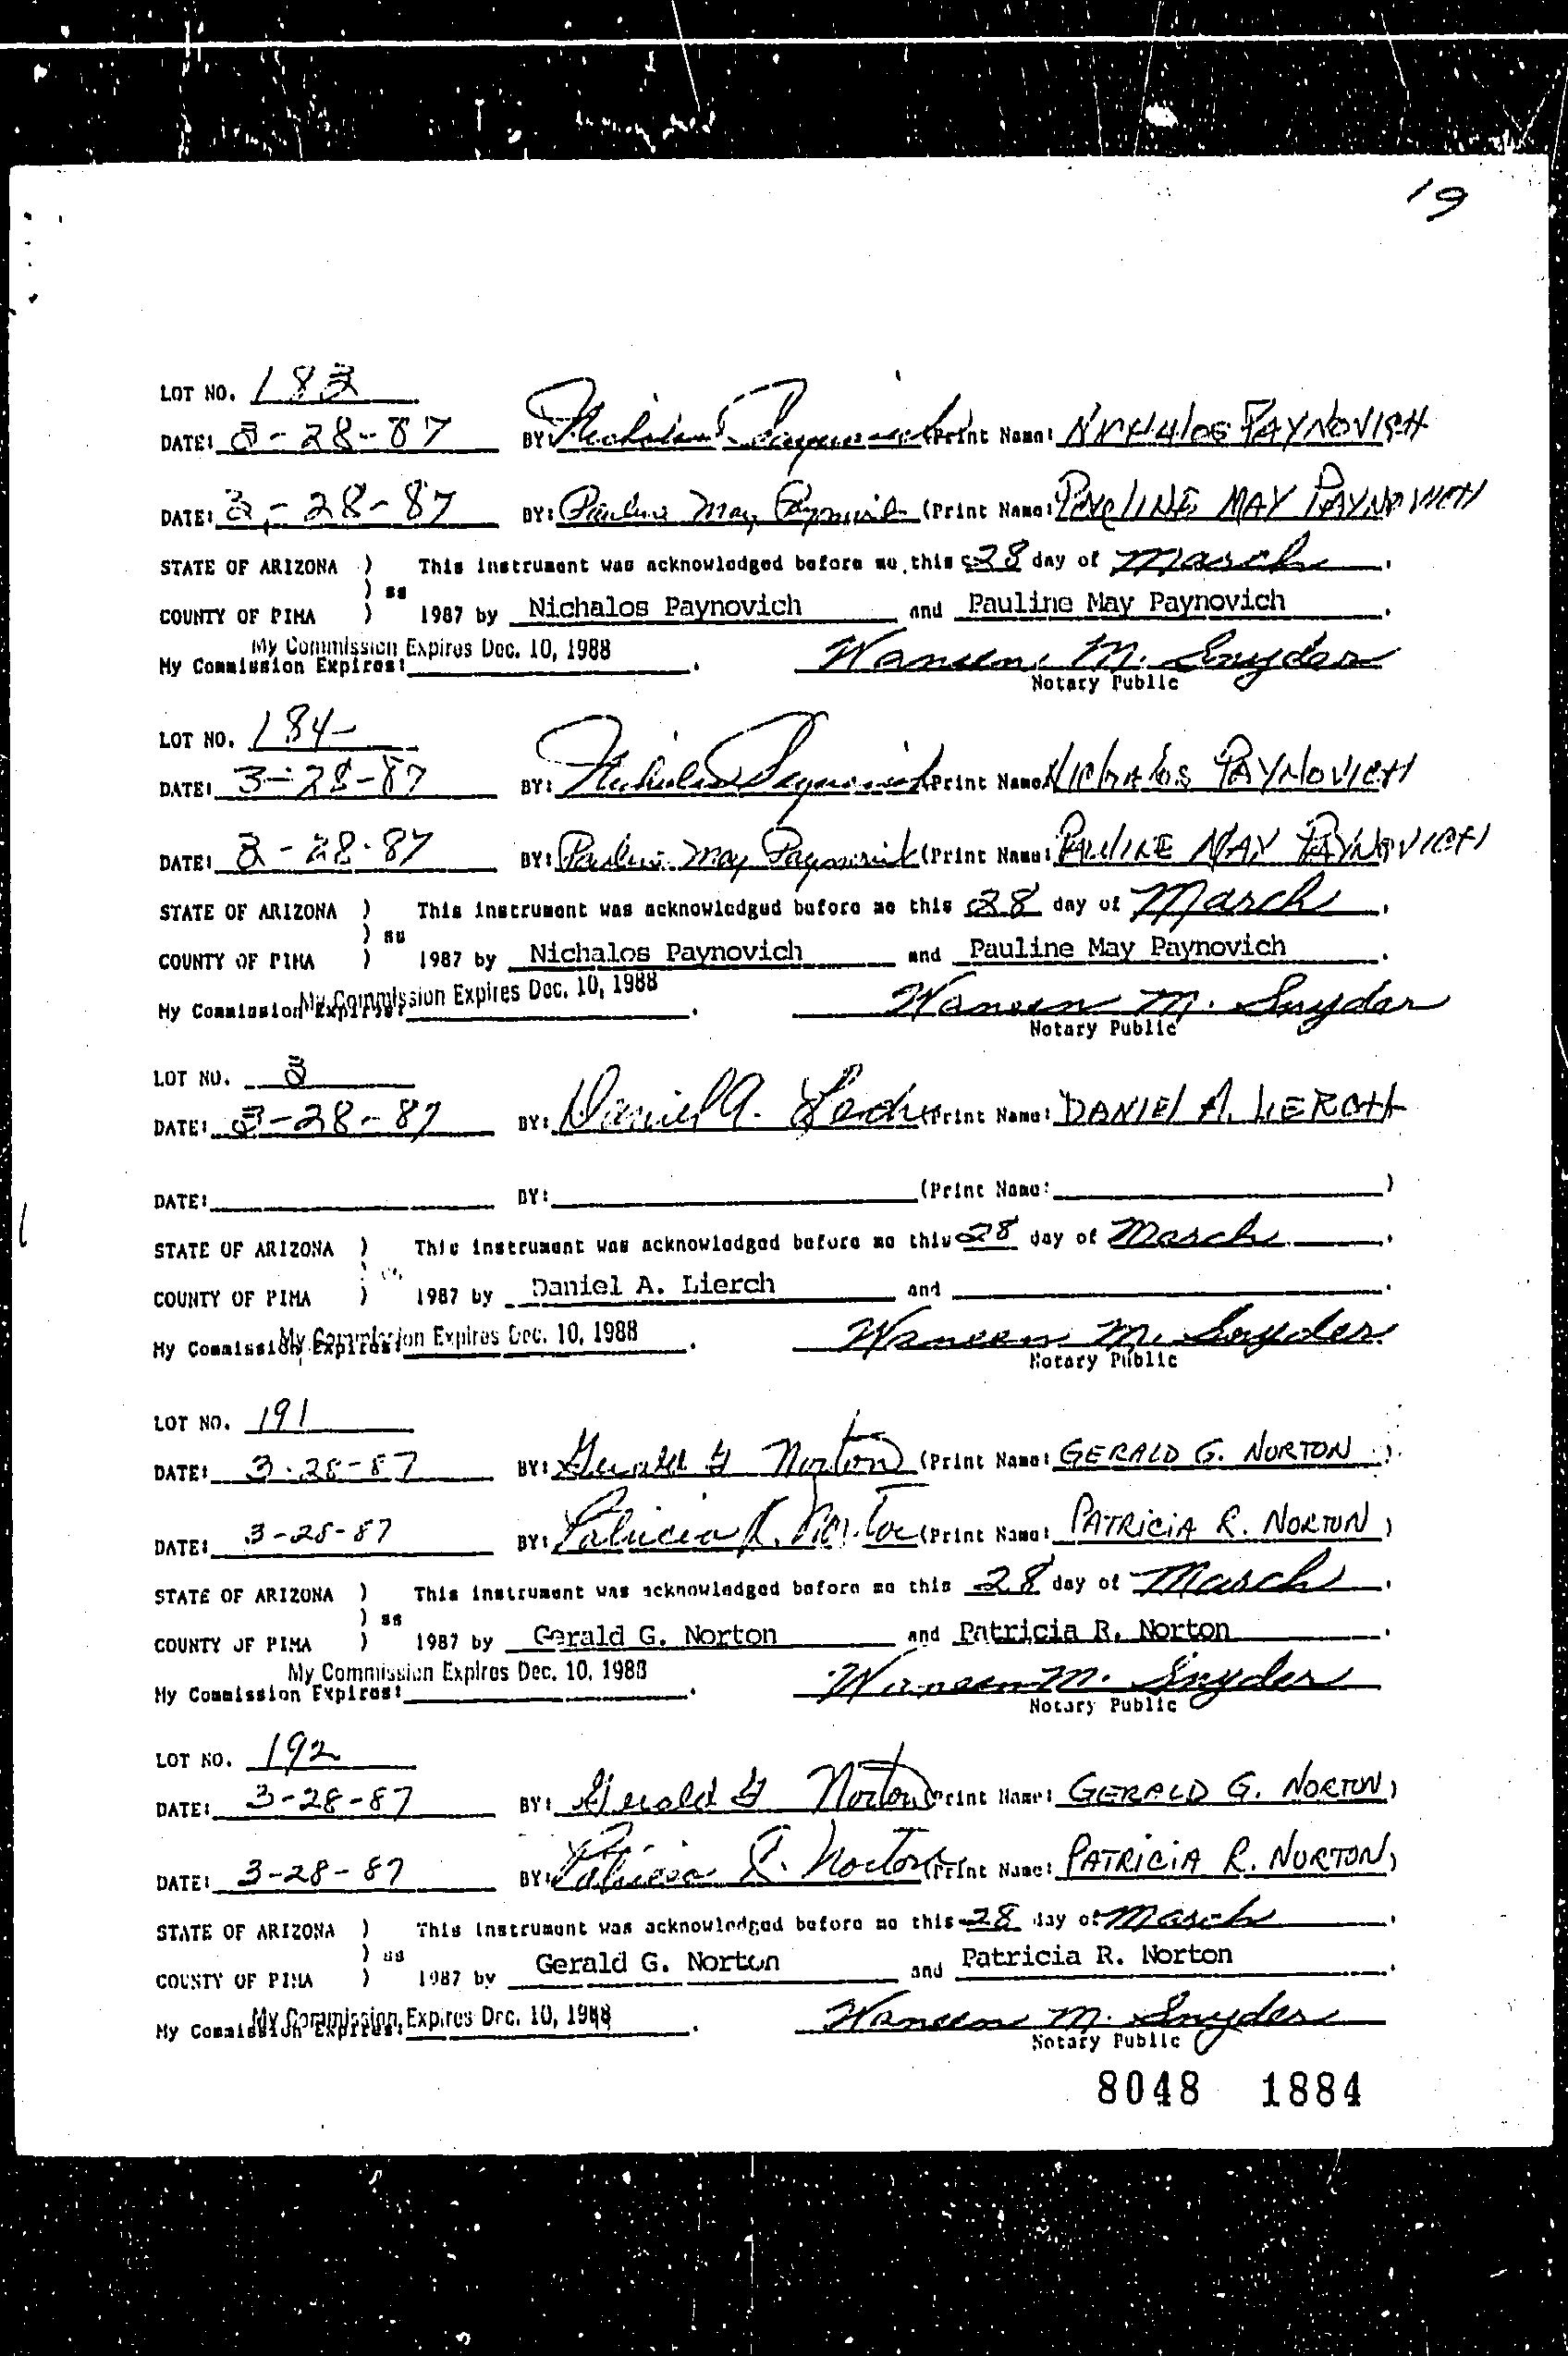 19
LOT NO. 183
DATE: 3-28-87 BY: Nicholas Paynovich (Print Name: NICHALOS PAYNOVICH
DATE: 3-28-87 BY: Pauline May Paynovich (Print Name: PAULINE MAY PAYNOVICH
STATE OF ARIZONA ) This instrument was acknowledged before me this 28 day of March.
) ss
COUNTY OF PIMA ) 1987 by Nichalos Paynovich and Pauline May Paynovich.
My Commission Expires Dec. 10, 1988
My Commission Expires: . M. Snyder
Notary Public
LOT NO. 184
DATE: 3-28-87 BY: Nicholas Paynovich (Print Name: NICHALOS PAYNOVICH
DATE: 3-28-87 BY: Pauline May Paynovich (Print Name: PAULINE MAY PAYNOVICH
STATE OF ARIZONA ) This instrument was acknowledged before me this 28 day of March,
) ss
COUNTY OF PIMA ) 1987 by Nichalos Paynovich and Pauline May Paynovich.
My Commission Expires Dec. 10, 1988
My Commission Expires: . M. Snyder
Notary Public
LOT NO. 3
DATE: 3-28-87 BY: Daniel A. (Print Name: DANIEL A. LIERCH
DATE: BY: (Print Name: )
STATE OF ARIZONA ) This instrument was acknowledged before me this 28 day of March.
COUNTY OF PIMA ) 1987 by Daniel A. Lierch and .
My Commission Expires Dec. 10, 1988
My Commission Expires: . M. Snyder
Notary Public
LOT NO. 191
DATE: 3-28-87 BY: Gerald G Norton (Print Name: GERALD G. NORTON )
DATE: 3-28-87 BY: Patricia R. Norton (Print Name: PATRICIA R. NORTON )
STATE OF ARIZONA ) This instrument was acknowledged before me this 28 day of March.
) ss
COUNTY OF PIMA ) 1987 by Gerald G. Norton and Patricia R. Norton.
My Commission Expires Dec. 10, 1988
My Commission Expires: . M. Snyder
Notary Public
LOT NO. 192
DATE: 3-28-87 BY: Gerald G Norton (Print Name: GERALD G. NORTON)
DATE: 3-28-87 BY: Patricia R. Norton (Print Name: PATRICIA R. NORTON)
STATE OF ARIZONA ) This instrument was acknowledged before me this 28 day of March.
) ss
COUNTY OF PIMA ) 1987 by Gerald G. Norton and Patricia R. Norton.
My Commission Expires Dec. 10, 1988
My Commission Expires: . M. Snyder
Notary Public
8048 1884